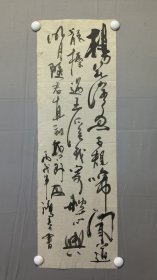 楊花落盡子規啼聞道
龍標過五溪我寄愁心與
明月隨君直到夜郎西
丙戌年 書